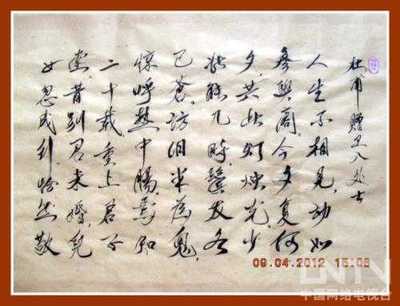 杜甫赠卫八处士
人生不相见动如
参與商今夕复何
夕共此灯烛光少
壮能几时鬓发各
已苍访旧半为鬼
惊呼热中肠焉知
二十载重上君子
堂昔别君未婚儿
女忽成行怡然敬
09.04.2012 15:08
CNTV
中国网络电视台